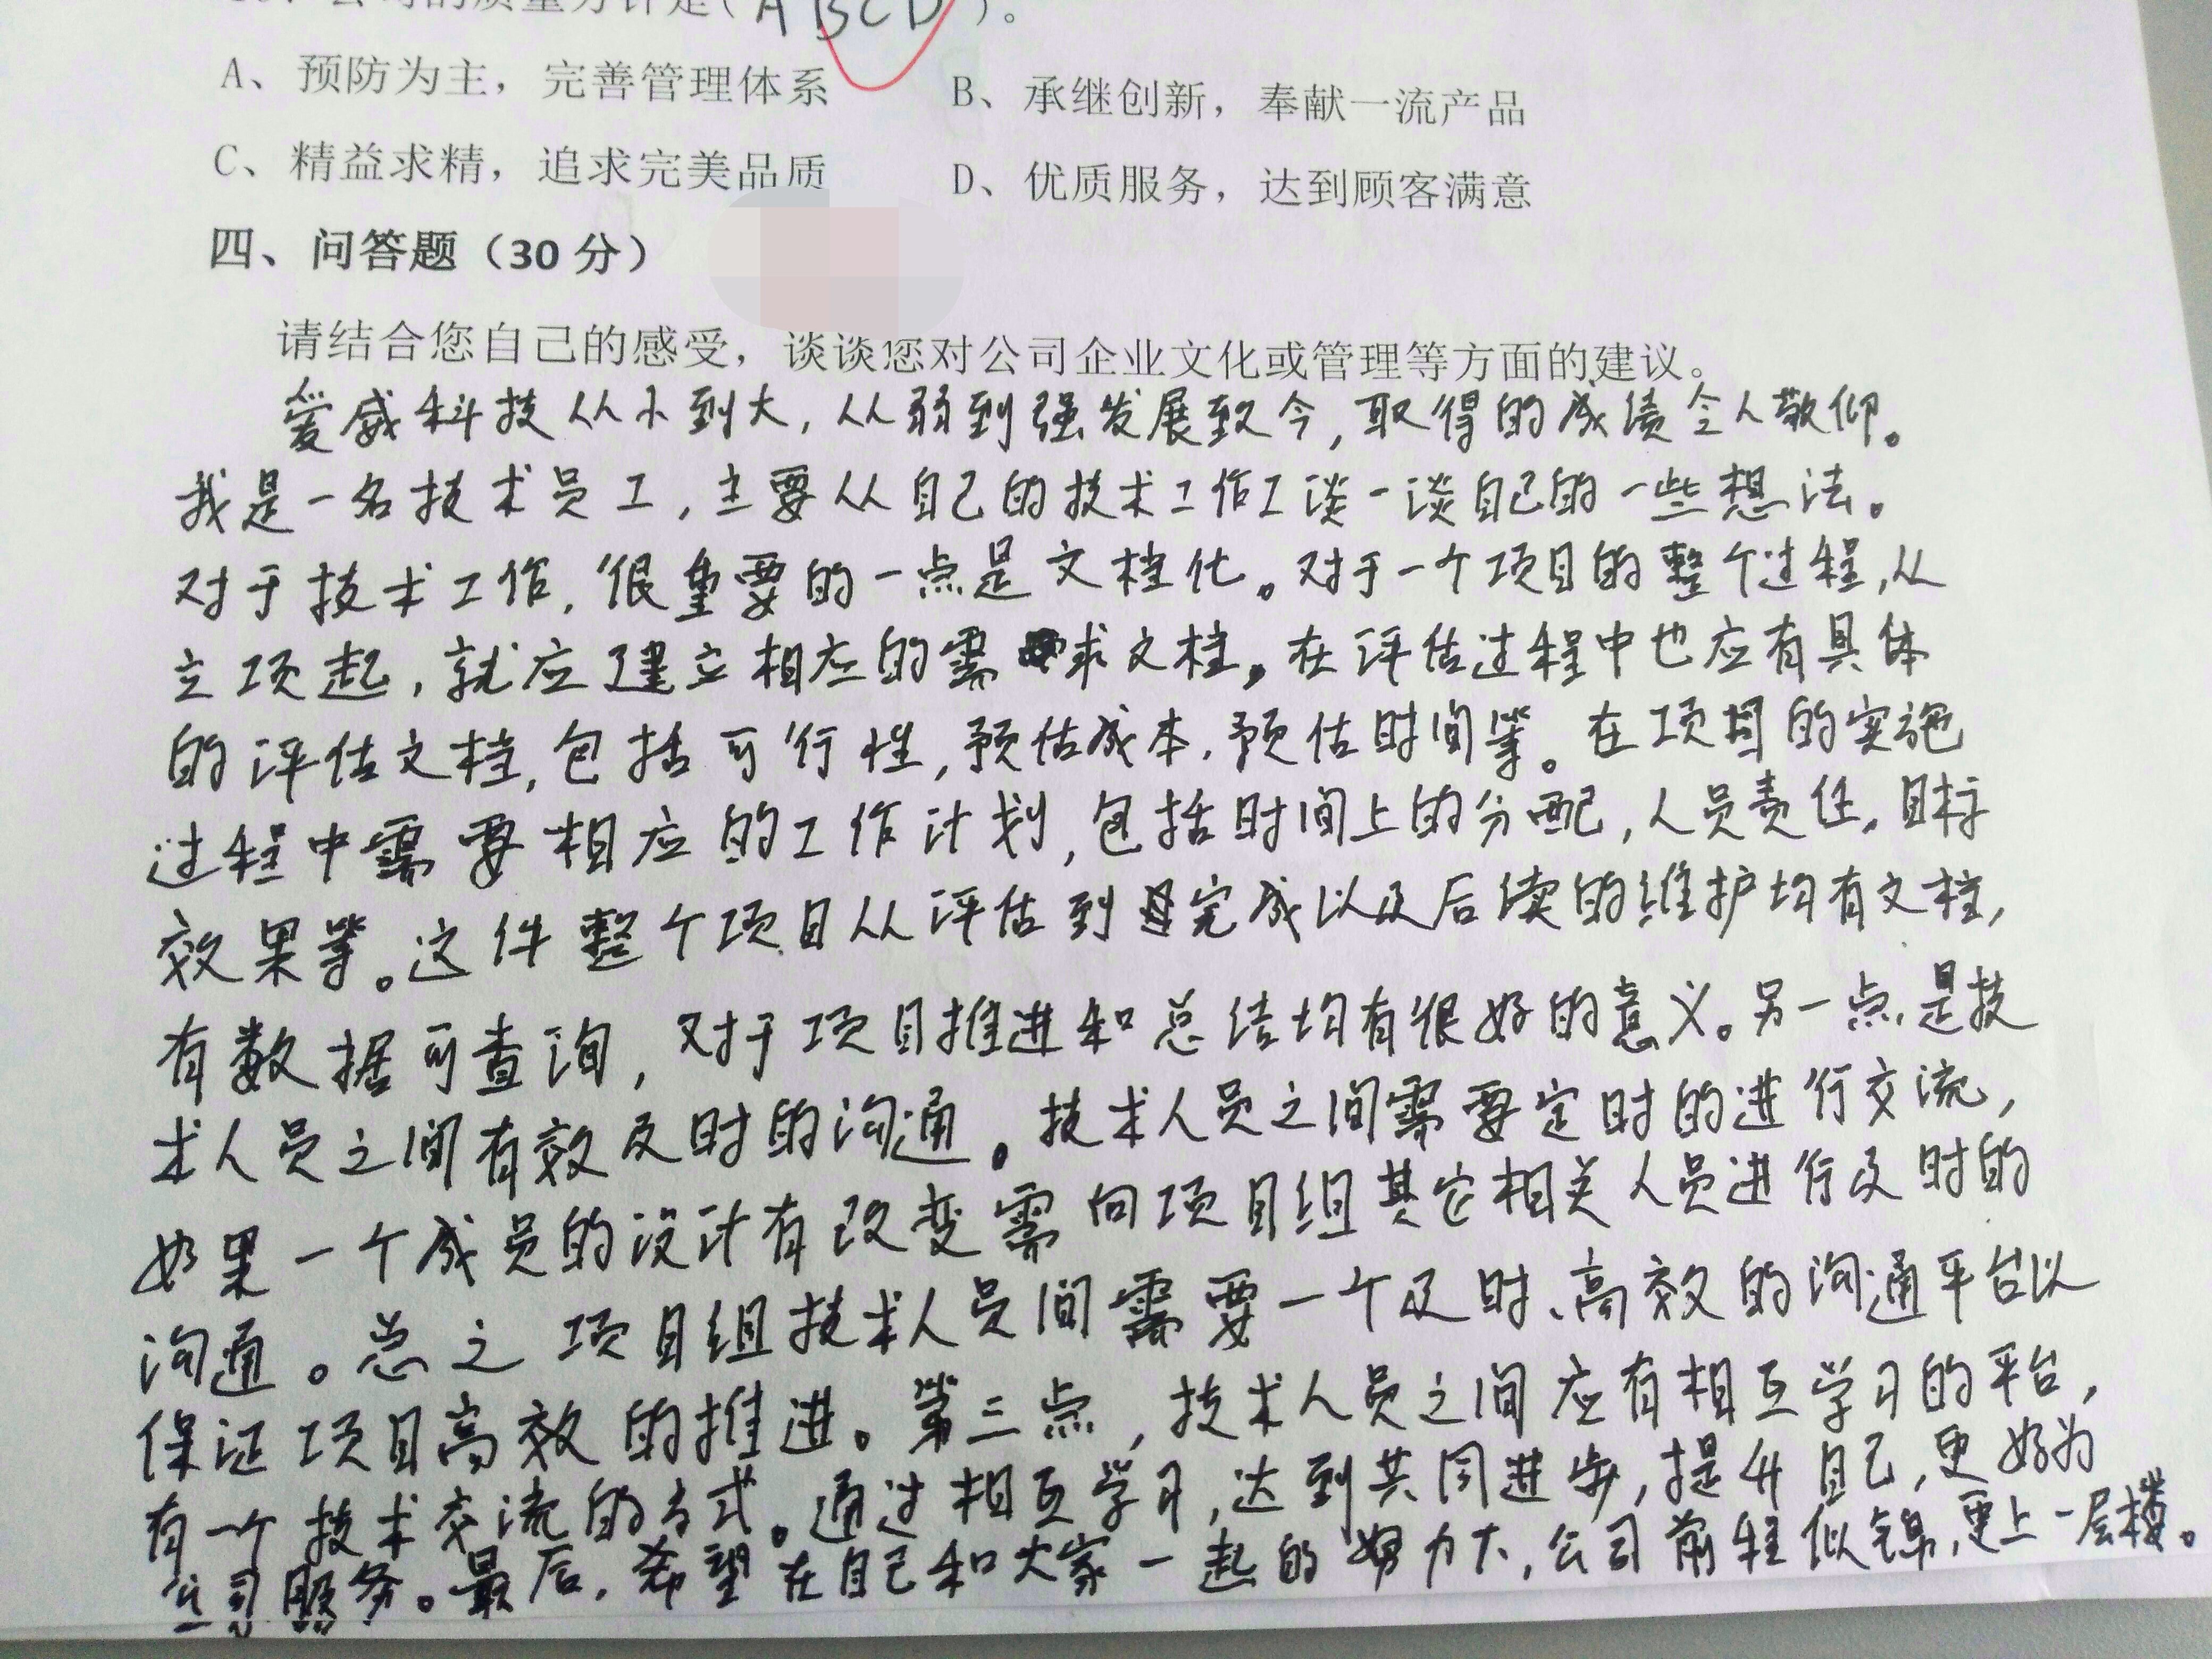 公司的质量方针是(ABCD)。
A、预防为主，完善管理体系 B、承继创新，奉献一流产品
C、精益求精，追求完美品质 D、优质服务，达到顾客满意
四、问答题（30 分）
请结合您自己的感受，谈谈您对公司企业文化或管理等方面的建议。
爱威科技从小到大，从弱到强发展致今，取得的成绩令人敬仰。
我是一名技术员工，主要从自己的技术工作工谈一谈自己的一些想法。
对于技术工作，很重要的一点是文档化。对于一个项目的整个过程，从
立项起，就应建立相应的需求文档。在评估过程中也应有具体
的评估文档，包括可行性，预估成本，预估时间等。在项目的实施
过程中需要相应的工作计划，包括时间上的分配，人员责任，目标
效果等。这件整个项目从评估到完成以及后续的维护均有文档，
有数据可查询，对于项目推进和总结均有很好的意义。另一点是技
术人员之间有效及时的沟通。技术人员之间需要定时的进行交流，
如果一个成员的设计有改变需向项目组其它相关人员进行及时的
沟通。总之项目组技术人员间需要一个及时、高效的沟通平台以
保证项目高效的推进。第三点，技术人员之间应有相互学习的平台，
有一个技术交流的方式。通过相互学习，达到共同进步，提升自己，更好为
公司服务。最后，希望在自己和大家一起的努力下，公司前程似锦，更上一层楼。